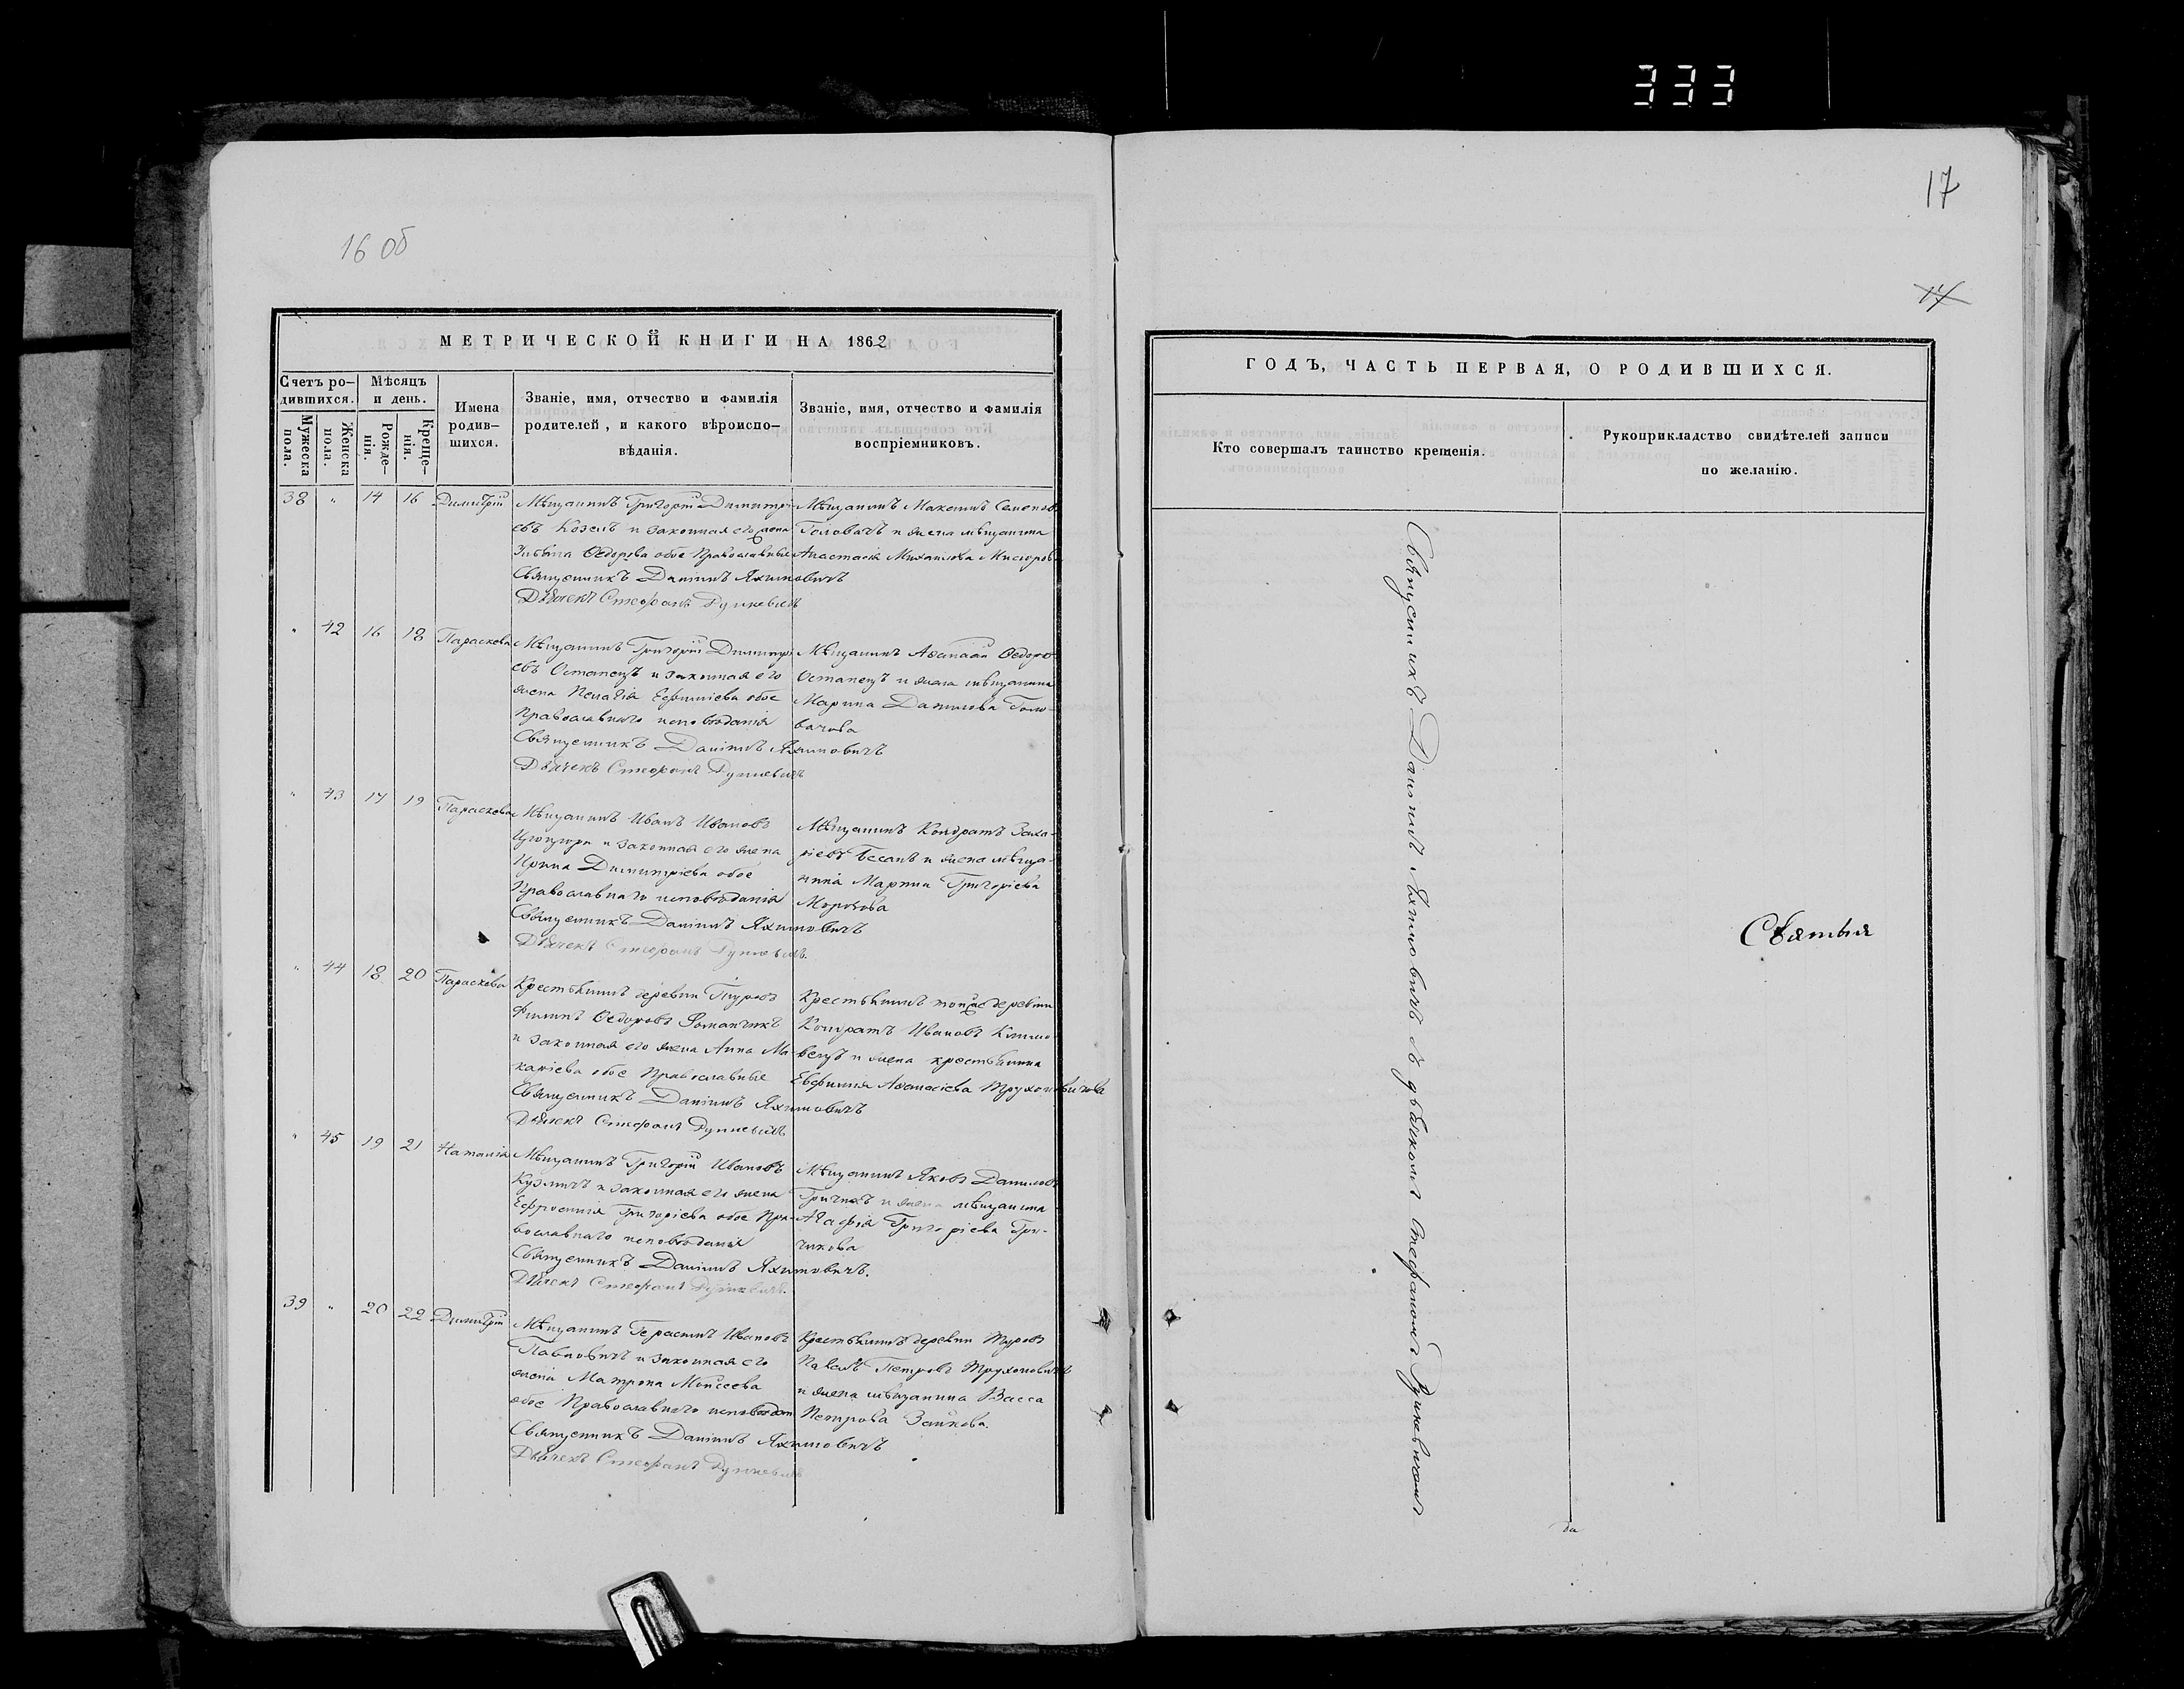 333
16 об
МЕТРИЧЕСКОЙ КНИГИ НА 1862
Счетъ ро-
дившихся.
Мѣсяцъ
и день.
Мужеска
пола.
Женска
пола.
Рожде-
нія.
Креще-
нія.
Имена
родив-
шихся.
Званіе, имя, отчество и фамилія
родителей, и какого вѣроиспо-
вѣданія.
Званіе, имя, отчество и фамилія
воспріемниковъ.
38 " 14 16 Димитрій
Мѣщанинъ Григорій Димитрі-
евъ Козелъ и законная его жена
Федорова обое Православные
Священникъ Даніилъ Яхимовичъ
Дьячекъ Стефанъ
Мѣщанинъ Максимъ Семеновъ
Головачъ и жена мѣщанина
Анастасія Михаилова
" 42 16 18 Параскева
Мѣщанинъ Григорій Димитрі-
евъ Остапецъ и законная его
жена Пелагія Ефиміева обое
Православнаго исповѣданія
Священникъ Даніилъ Яхимовичъ
Дьячекъ Стефанъ
Мѣщанинъ Аѳанасій Ѳедоро
Остапецъ и жена мѣщанина
Марина Данилова Голо-
вачова
" 43 17 19 Параскева
Мѣщанинъ Иванъ Ивановъ
и законная его жена
Ирина Димитріева обое
Православнаго исповѣданія
Священникъ Даніилъ Яхимовичъ
Дьячекъ Стефанъ
Мѣщанинъ Кондратъ Заха-
ріевъ и жена мѣща-
нина Марина Григоріева
Морозова
" 44 18 20 Параскева
Крестьянинъ деревни Туровъ
Филипъ Ѳедоровъ Романчикъ
и законная его жена Анна Ма-
каріева обое Православные
Священникъ Даніилъ Яхимовичъ
Дьячекъ Стефанъ
Крестьянинъ тойже деревни
Кондратъ Ивановъ Климо-
вецъ и жена крестьянина
Евфимія Аѳанасіева Трухоновичова
" 45 19 21 Наталія
Мѣщанинъ Григорій Ивановъ
Кузмичъ и законная его жена
Ефросинія Григоріева обое Пра-
вославнаго исповѣданія
Священникъ Даніилъ Яхимовичъ.
Дьячекъ Стефанъ
Мѣщанинъ Яковъ Даниловъ
и жена мѣщанина
Агафія Григоріева Гри-
чикова
39 " 20 22 Димитрій
Мѣщанинъ Герасимъ Ивановъ
Павловичъ и законная его
жена Матрона Моисеева
обое Православнаго исповѣдан
Священникъ Даніилъ Яхимовичъ
Дьячекъ Стефанъ
Крестьянинъ деревни Туровъ
Павелъ Петровъ Трухоновичъ
и жена мѣщанина Васса
Петрова Заикова.
17
17
ГОДЪ, ЧАСТЬ ПЕРВАЯ, О РОДИВШИХСЯ.
Кто совершалъ таинство крещенія.
Рукоприкладство свидѣтелей записи
по желанію.
Священникъ Даніилъ Яхимовичъ съ дьячкомъ Стефаномъ
Святыя